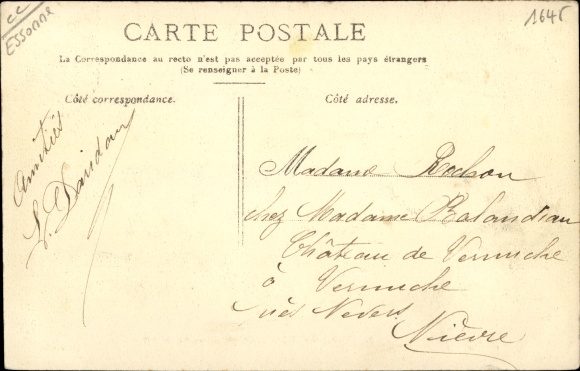 CC
Essonne
1645
CARTE POSTALE
La Correspondance au recto n'est pas acceptée par tous les pays étrangers
(Se renseigner à la Poste)
Côté correspondance.
Côté adresse.
Amitiés
Madame Rochon
chez Madame
Château de Vernuche
à Vernuche
près Nevers
Nièvre